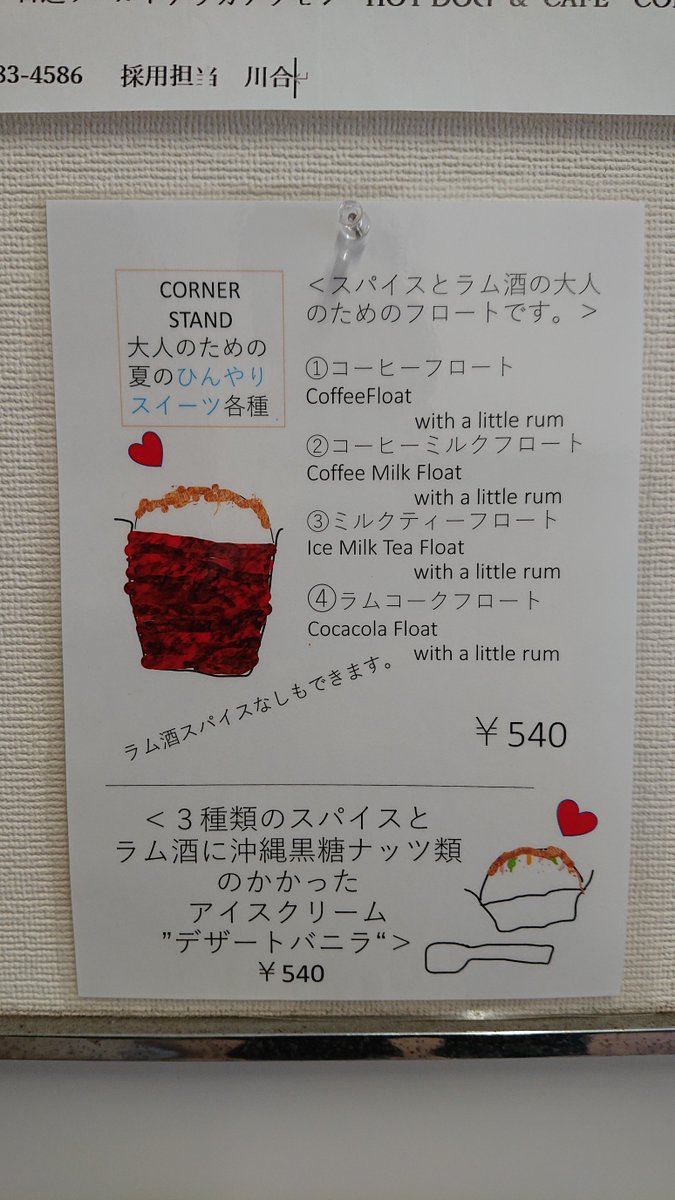 HOT DOG & CAFE
83-4586 採用担当 川合
CORNER
STAND
大人のための
夏のひんやり
スイーツ各種
＜スパイスとラム酒の大人
のためのフロートです。＞
①コーヒーフロート
CoffeeFloat
with a little rum
②コーヒーミルクフロート
Coffee Milk Float
with a little rum
③ミルクティーフロート
Ice Milk Tea Float
with a little rum
④ラムコークフロート
Cocacola Float
with a little rum
ラム酒スパイスなしもできます。
￥540
＜３種類のスパイスと
ラム酒に沖縄黒糖ナッツ類
のかかった
アイスクリーム
”デザートバニラ“＞
￥540